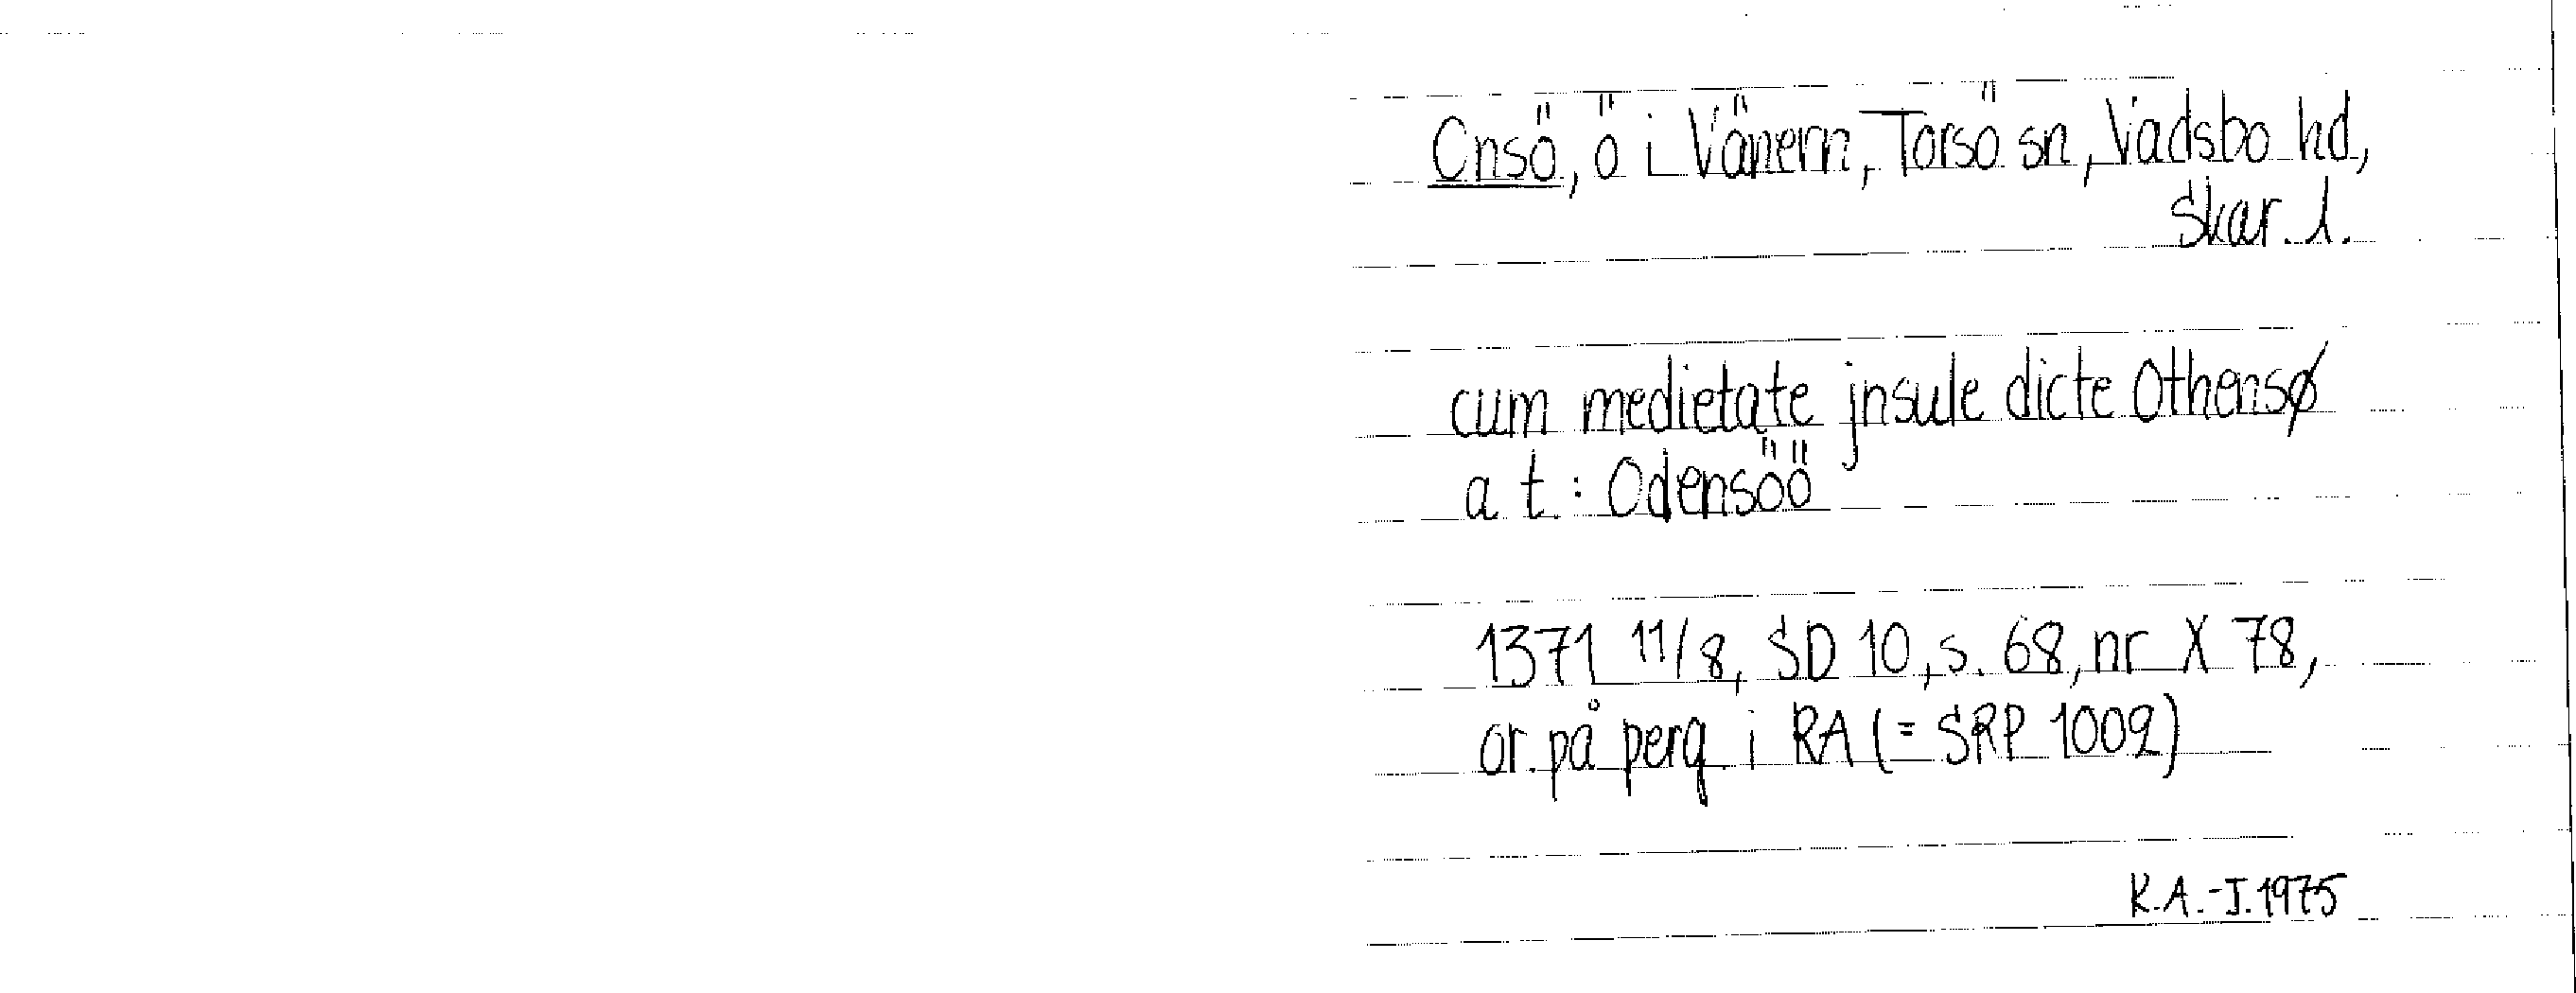 Onsö, ö i Vänern, Torsö sn, Vadsbo hd,
Skar. l.
cum medietate jnsule dicte Othensø
a t: Odensöö
1371 11/8, SD 10, s. 68, nr X 78,
or. på perg. i RA (= SRP 1009)
K.A.-J. 1975